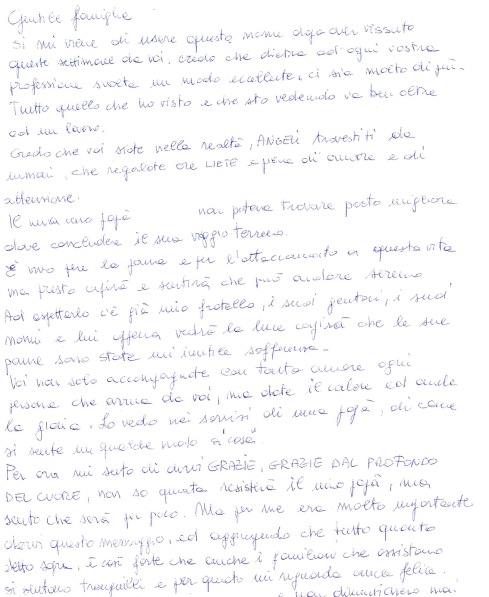 Gentile famiglia
Si mi viene di usare questo nome dopo aver vissuto
queste settimane da voi, credo che dietro ad ogni vostra
professione svolta in modo eccellente, ci sia molto di più.
Tutto quello che ho visto e che sto vedendo va ben oltre
ad un lavoro.
Credo che voi siate nella realtà, ANGELI travestiti da
umani, che regalate ore LIETE e piene di amore e di
attenzione.
Il mio caro papà non poteva trovare posto migliore
dove concludere il suo viaggio terreno.
È vivo per la paura e per l'attaccamento a questa vita
ma presto capirà e sentirà che può andare sereno
Ad aspettarlo c'è già mio fratello, i suoi genitori, i suoi
nonni e lui appena vedrà la luce capirà che le sue
paure sono state un'inutile sofferenza.
Voi non solo accompagnate con tanto amore ogni
persona che arriva da voi, ma date il calore ed anche
la gioia. Lo vedo nei sorrisi di mio papà, di come
si sente in qualche modo a "casa"
Per ora mi sento di dirvi GRAZIE, GRAZIE DAL PROFONDO
DEL CUORE, non so quanto resisterà il mio papà, ma
sento che sarà per poco. Ma per me era molto importante
darvi questo messaggio, ed aggiungendo che tutto quanto
detto sopra, è così forte che anche i familiari che assistono
si sentano tranquilli e per quanto mi riguarda anche felice.
non dimenticherò mai